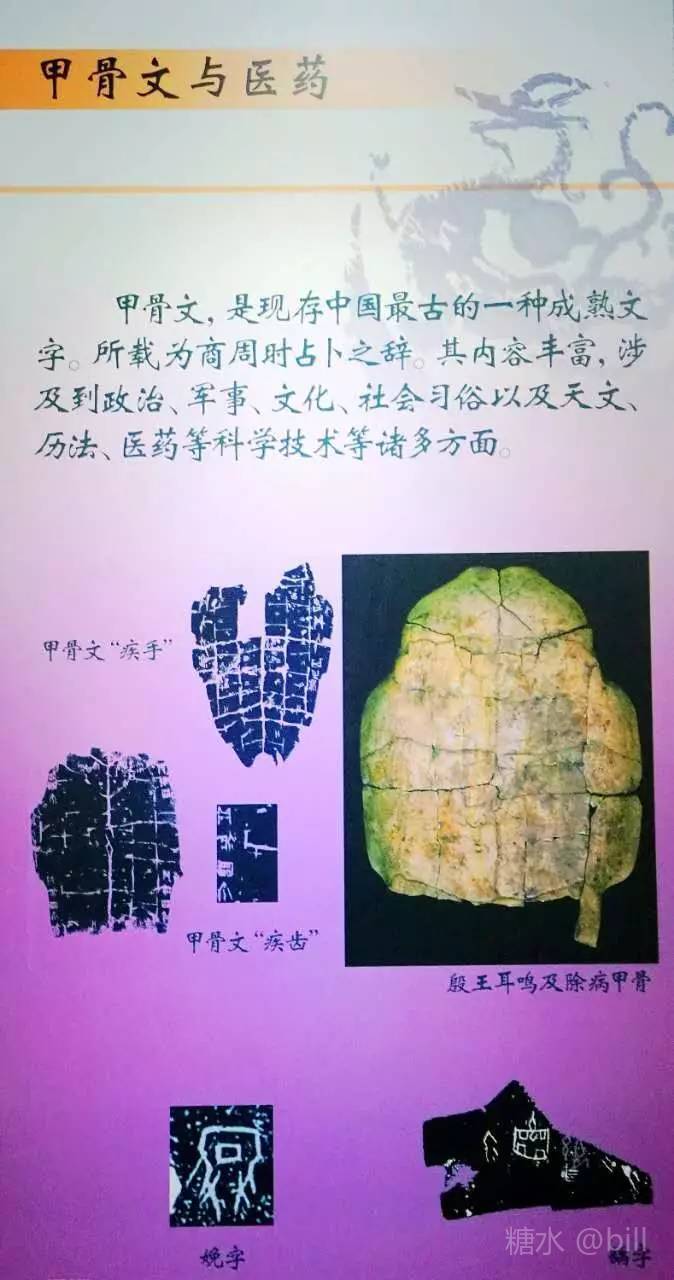 甲骨文与医药
甲骨文，是现存中国最古的一种成熟文
字。所载为商周时占卜之辞。其内容丰富，涉
及到政治、军事、文化、社会习俗以及天文、
历法、医药等科学技术等诸多方面。
甲骨文“疾手”
甲骨文“疾齿”
殷王耳鸣及除病甲骨
娩字
糖水 @bill